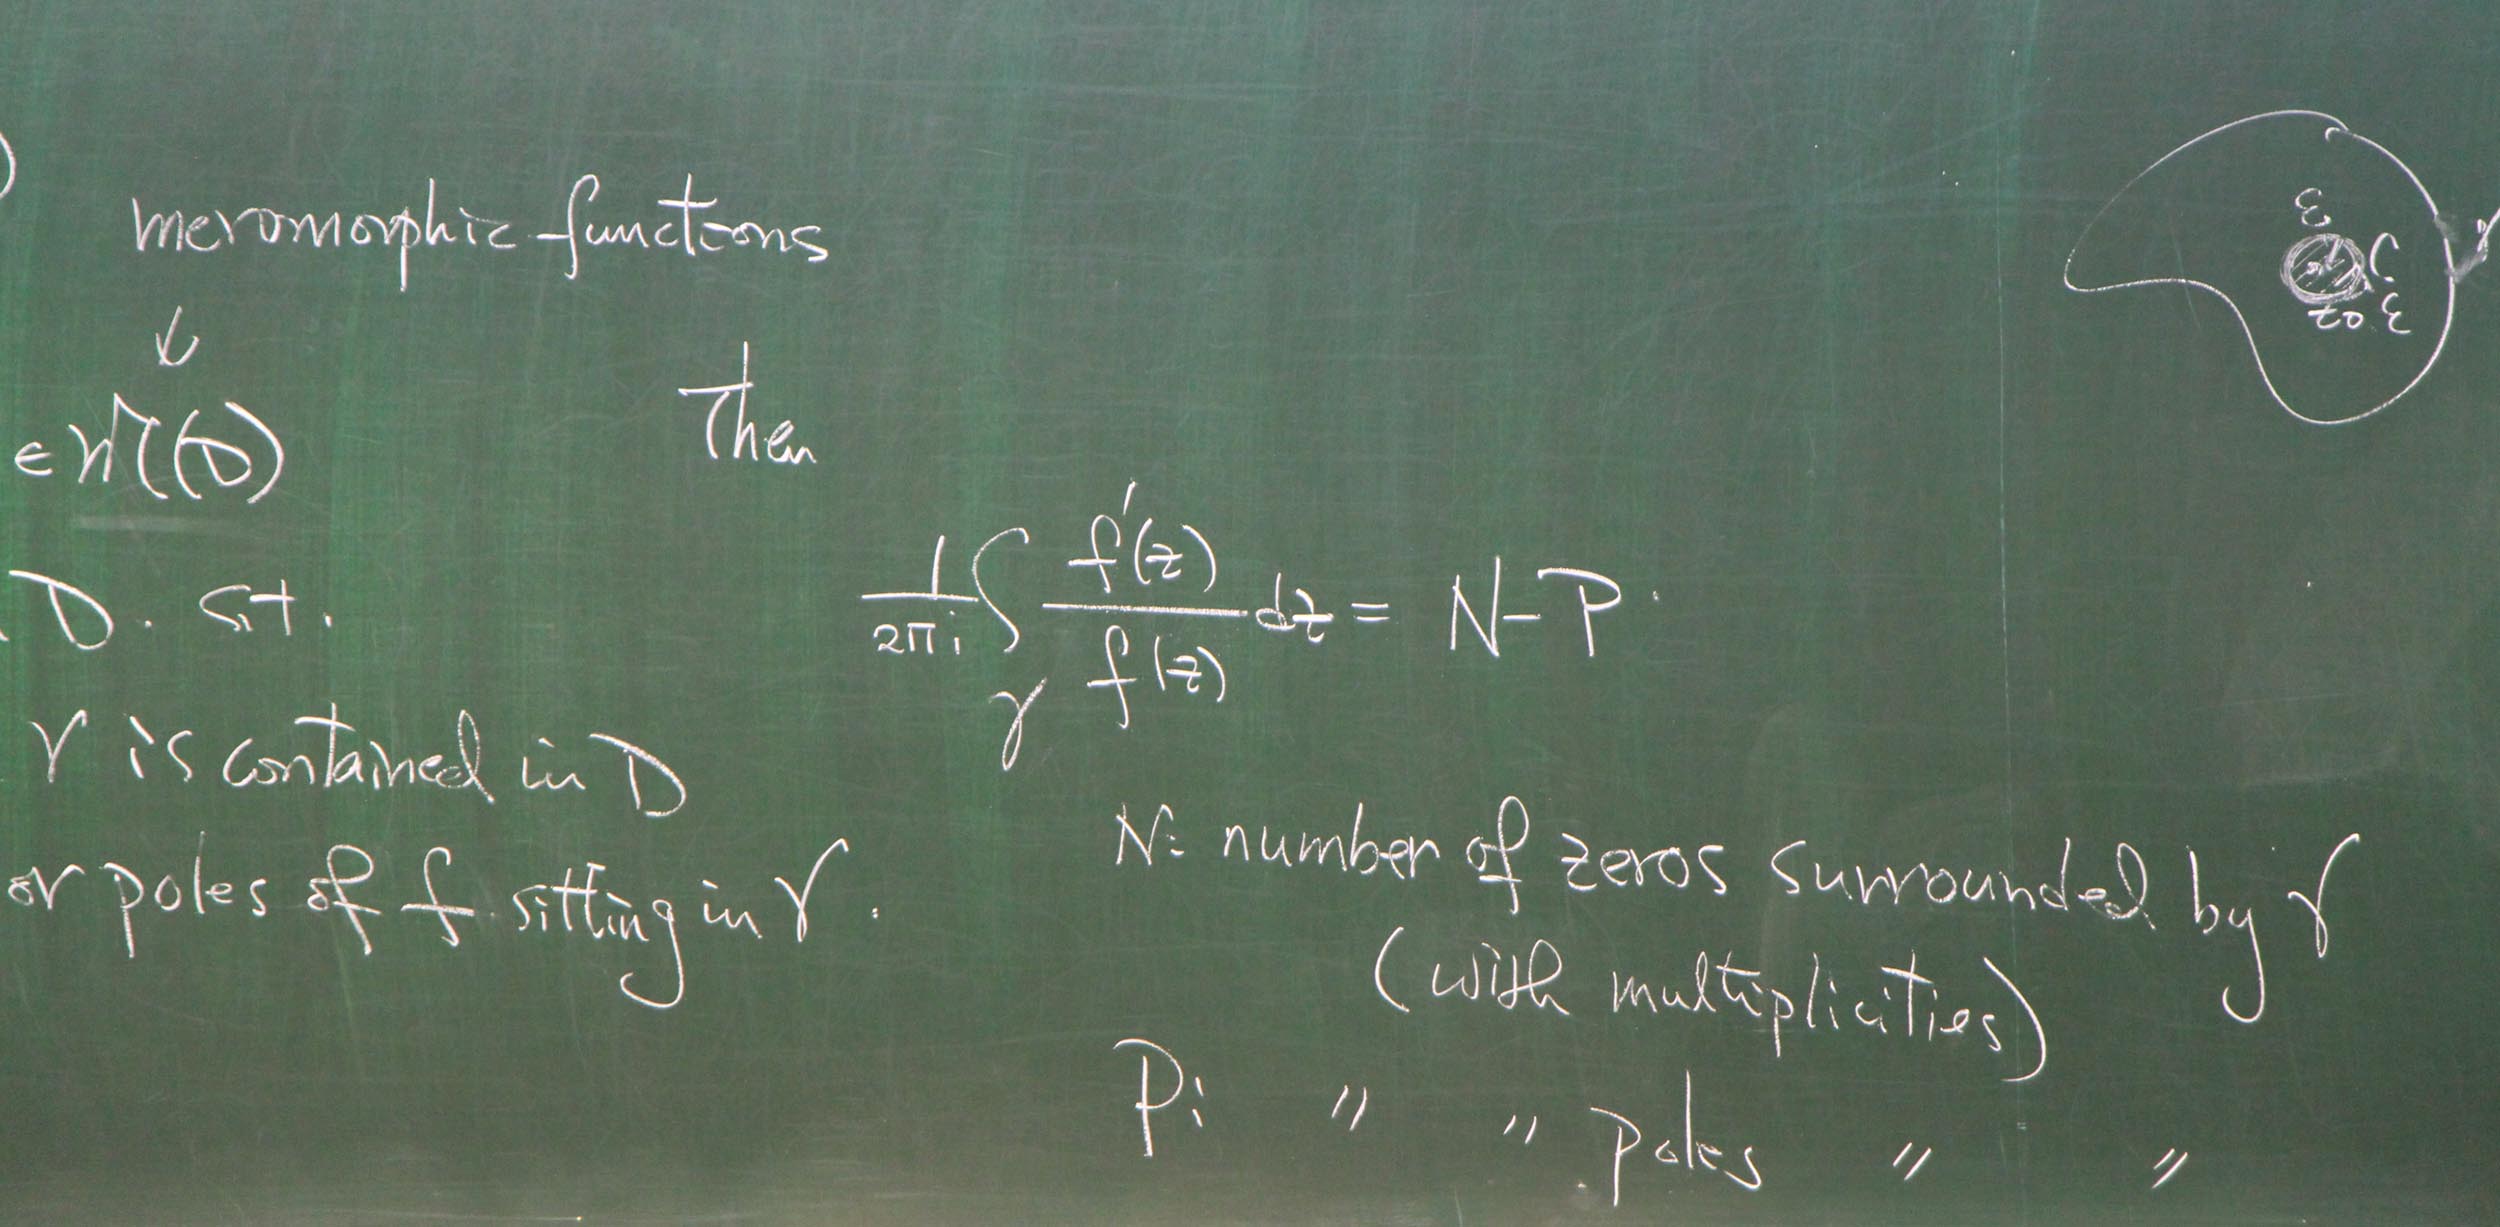 meromorphic functions
↓
∈ M(D)
D. s.t.
γ is contained in D
or poles of f sitting in γ.
Then
1/2πi ∫γ f'(z)/f(z) dz = N-P.
N: number of zeros surrounded by γ
(with multiplicities)
P: " " poles " "
ε
C
z0 ε
γ